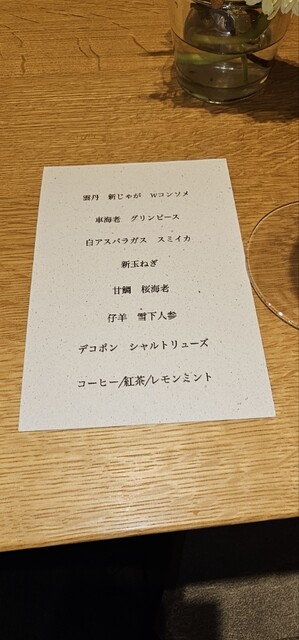 雲丹 新じゃが Wコンソメ
車海老 グリンピース
白アスパラガス スミイカ
新玉ねぎ
甘鯛 桜海老
仔羊 雪下人参
デコポン シャルトリューズ
コーヒー/紅茶/レモンミント